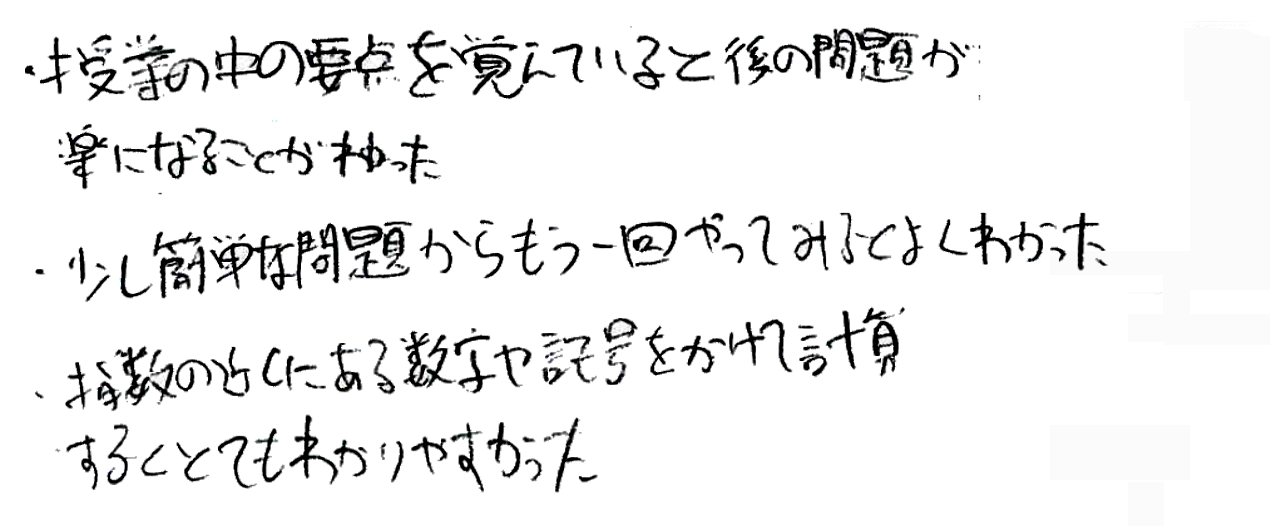 ・授業の中の要点を覚えていると後の問題が
楽になることがわかった
・少し簡単な問題からもう一回やってみるとよくわかった
・指数の近くにある数字や記号をかけて計算
するととてもわかりやすかった